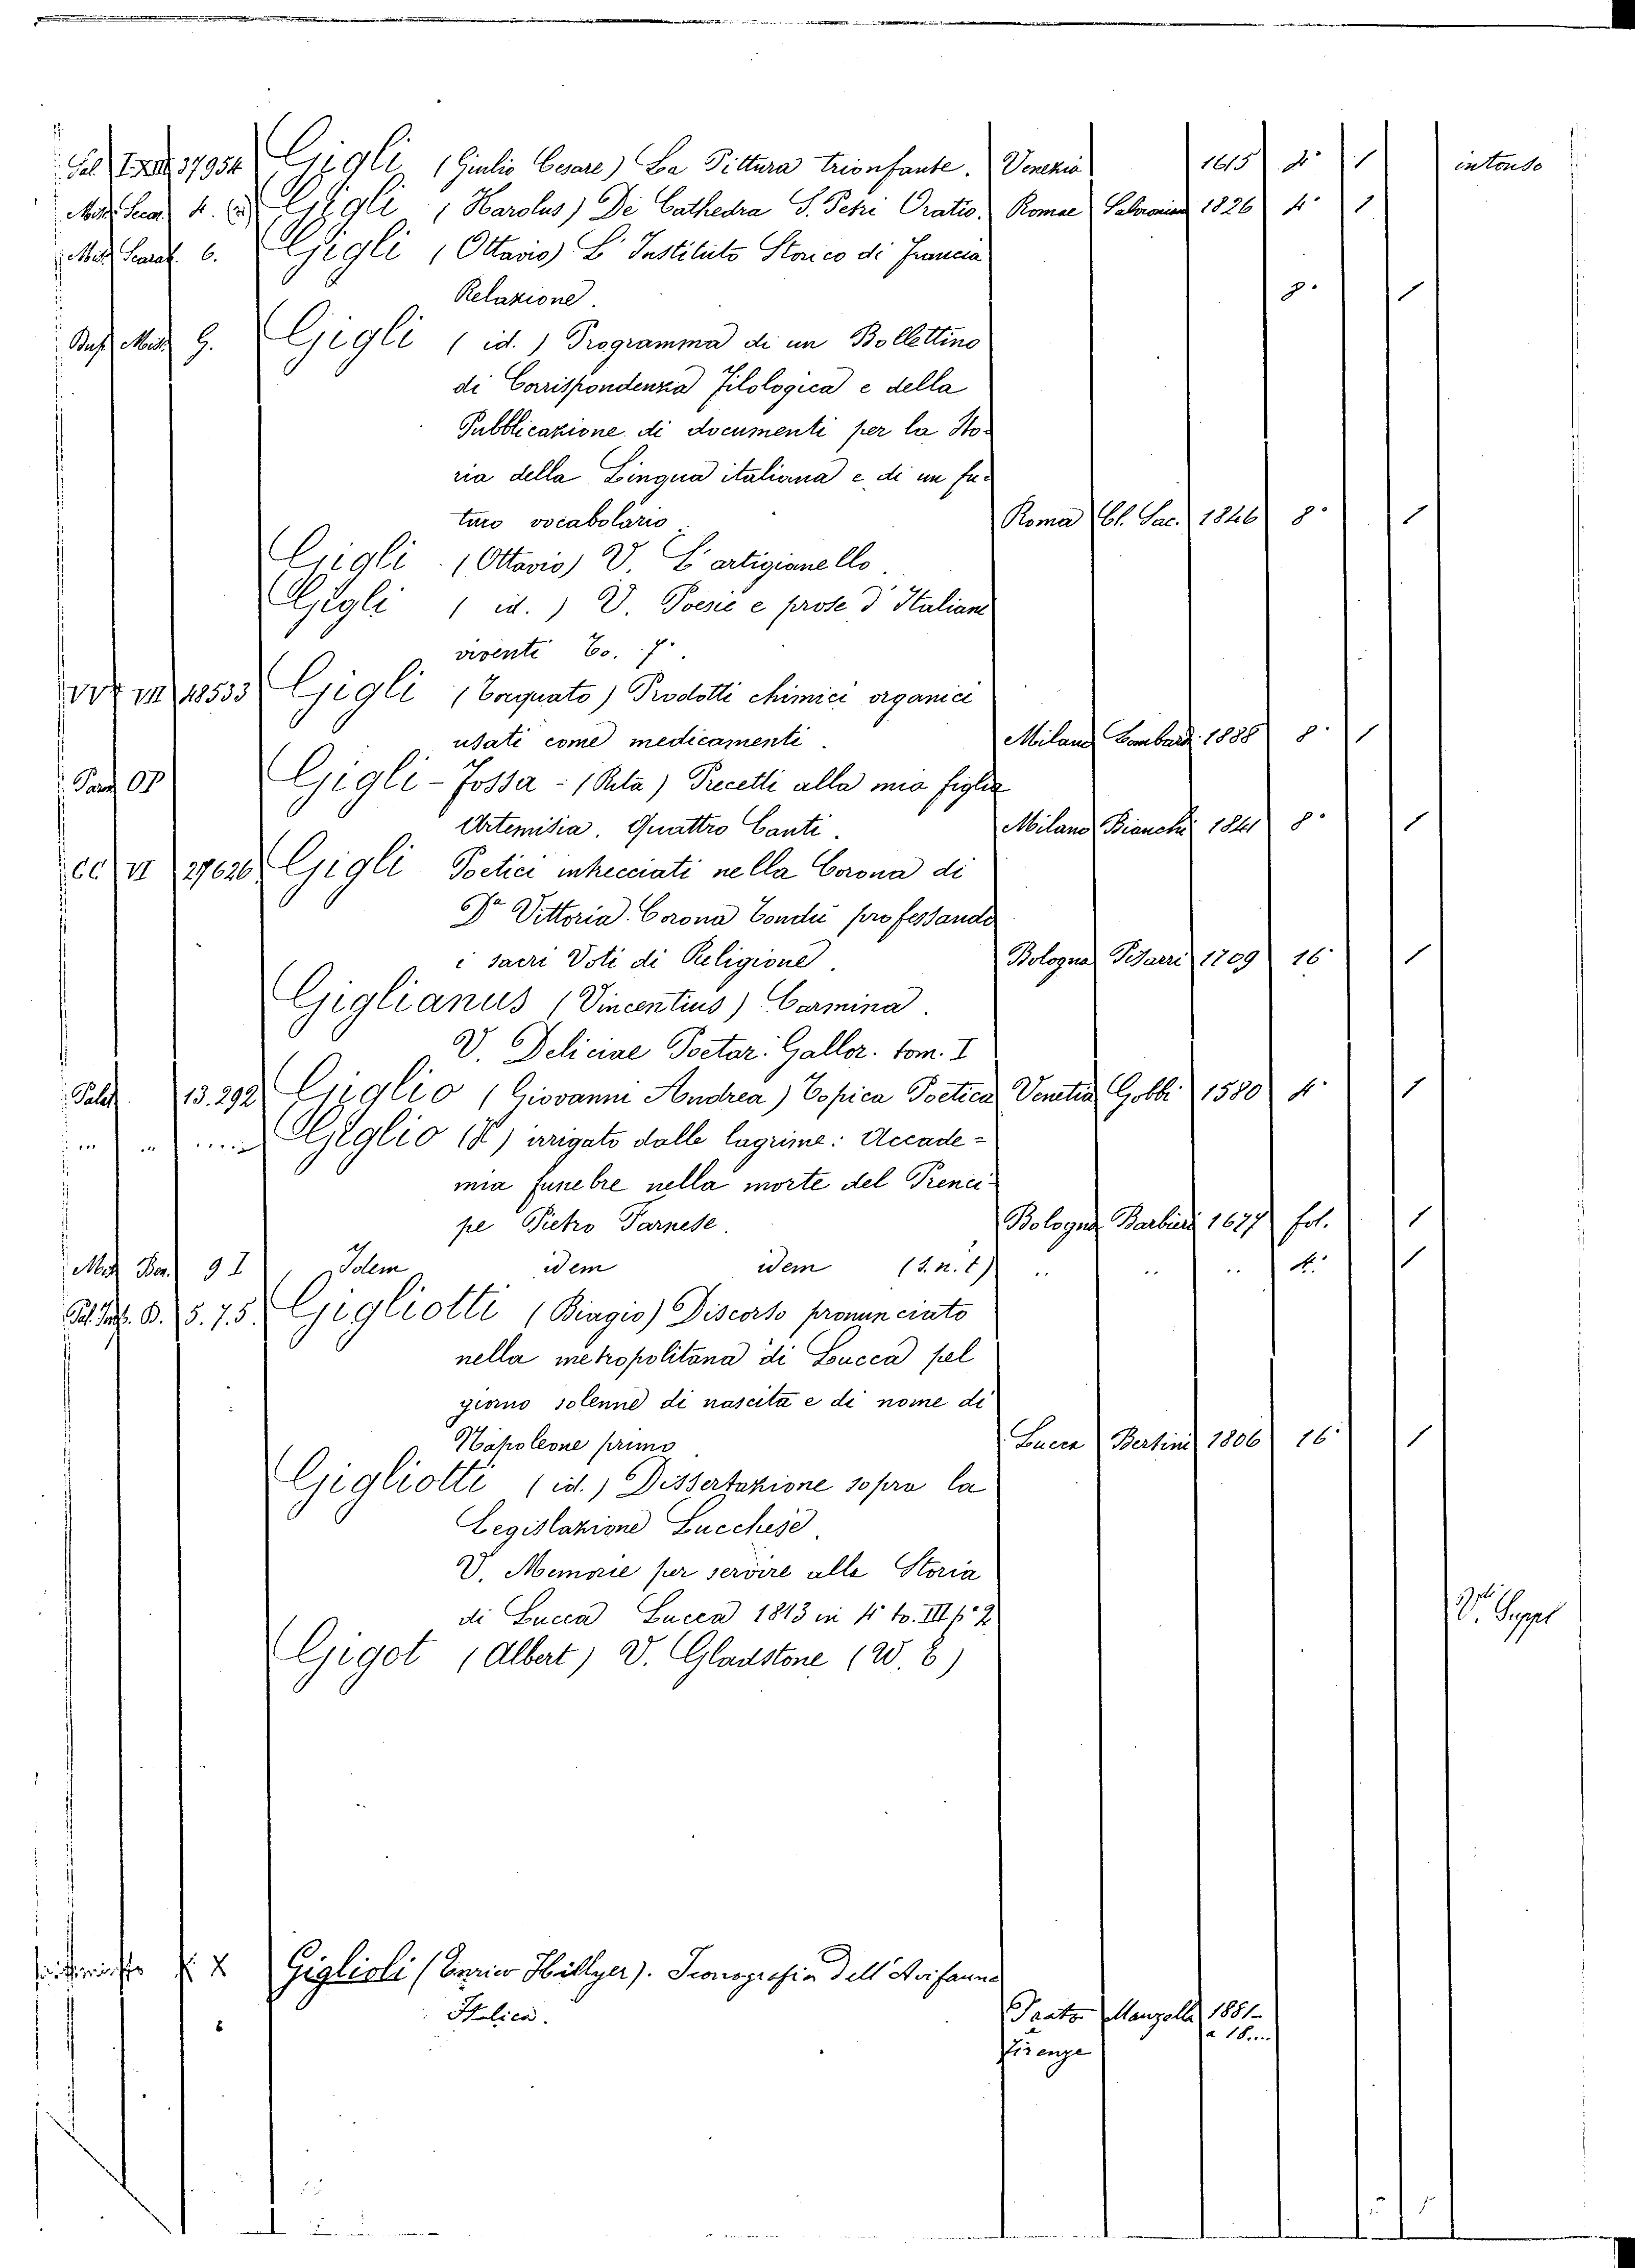 Pal. I. XIII 37954 Gigli (Giulio Cesare) La Pittura trionfante. Venezia 1615 4° 1 intonso
Misc. Scaraf. 4. Gigli (Karolus) De Cathedra S. Petri Oratio. Romae Salvioniana 1826 4° 1
Misc. Scaraf. 6. Gigli (Ottavio) L' Instituto Storico di Francia
Relazione. 8° 1
Misc. G. Gigli (id.) Programma di un Bollettino
di Corrispondenza Filologica e della
Pubblicazione di documenti per la Sto-
ria della Lingua italiana e di un fu-
turo vocabolario. Roma Cl. Sac. 1846 8° 1
Gigli (Ottavio) V. L' artigianello.
Gigli (id.) V. Poesie e prose d' Italiani
viventi To. 7°.
VII 48533 Gigli (Torquato) Prodotti chimici organici
usati come medicamenti. Milano Lombard. 1888 8° 1
Gigli-Fossa - (Rita) Precetti alla mia figlia
Artemisia. Quattro Canti. Milano Bianchi 1841 8° 1
CC VI 27626 Gigli Poetici intrecciati nella Corona di
Da Vittoria Corona Condù professando
i sacri Voti di Religione. Bologna Pisarri 1709 16° 1
Giglianus (Vincentius) Carmina.
V. Deliciae Poetar. Gallor. tom. I
Palat. 13.292 Giglio (Giovanni Andrea) Topica Poetica Venetia Gobbi 1580 4° 1
" " " Giglio (Il) irrigato dalle lagrime: Accade-
mia funebre nella morte del Prenci-
pe Pietro Farnese. Bologna Barbieri 1677 fol. 1
Misc. Bor. 91 Idem idem idem (s.n.t) .. .. .. 4° 1
B. 5.7.5. Gigliotti (Biagio) Discorso pronunciato
nella metropolitana di Lucca pel
giorno solenne di nascita e di nome di
Napoleone primo Lucca Bertini 1806 16° 1
Gigliotti (id.) Dissertazione sopra la
Legislazione Lucchese.
V. Memorie per servire alla Storia
di Lucca Lucca 1813 in 4° to. III p. 2
V. Suppl
Gigot (Albert) V. Gladstone (W. E)
X Giglioli (Enrico Hillyer). Iconografia dell' Avifauna
Italica. Prato Manzella 1881-
a 18....
Firenze